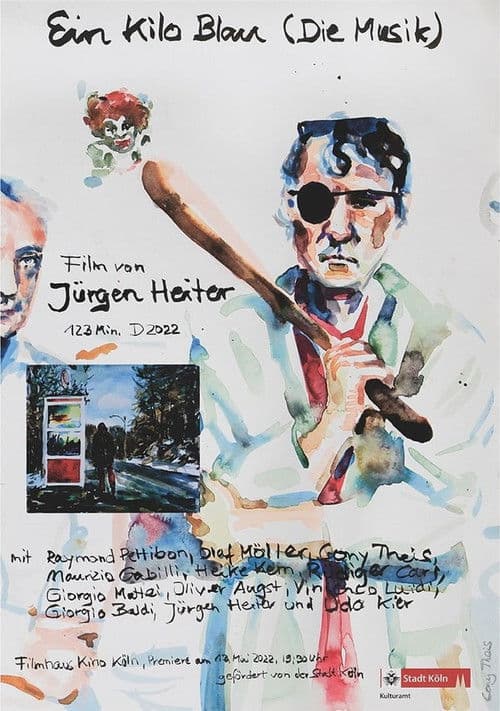 Ein Kilo Blau (Die Musik)
Film von
Jürgen Heiter
123 Min. D 2022
mit Raymond Pettibon, Olaf Möller, Cony Theis,
Maurizio Gabilli, Heike Kern, Rüdiger Carl,
Giorgio Mattei, Oliver Augst, Luidi,
Giorgio Baldi, Jürgen Heiter und Udo Kier
Filmhaus Kino Köln, Premiere am Mai 2022, 19,30 Uhr
gefördert von der Stadt Köln
Stadt Köln
Kulturamt
Cony Theis